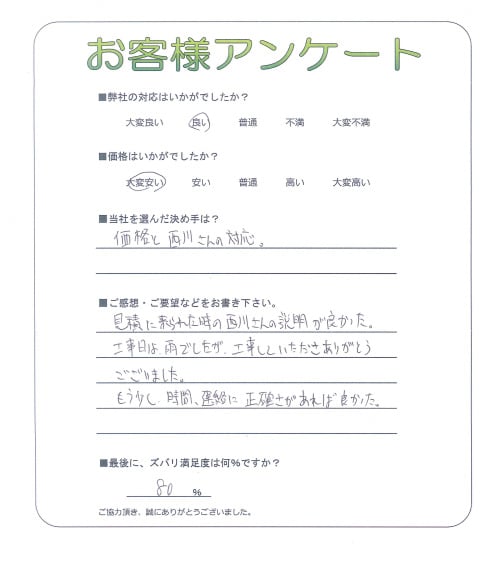 お客様アンケート
■弊社の対応はいかがでしたか？
大変良い 良い 普通 不満 大変不満
■価格はいかがでしたか？
大変安い 安い 普通 高い 大変高い
■当社を選んだ決め手は？
価格と西川さんの対応。
■ご感想・ご要望などをお書き下さい。
見積に来られた時の西川さんの説明が良かった。
工事日は、雨でしたが、工事していただきありがとう
ございました。
もう少し、時間、連絡に正確さがあれば良かった。
■最後に、ズバリ満足度は何%ですか？
80 %
ご協力頂き、誠にありがとうございました。